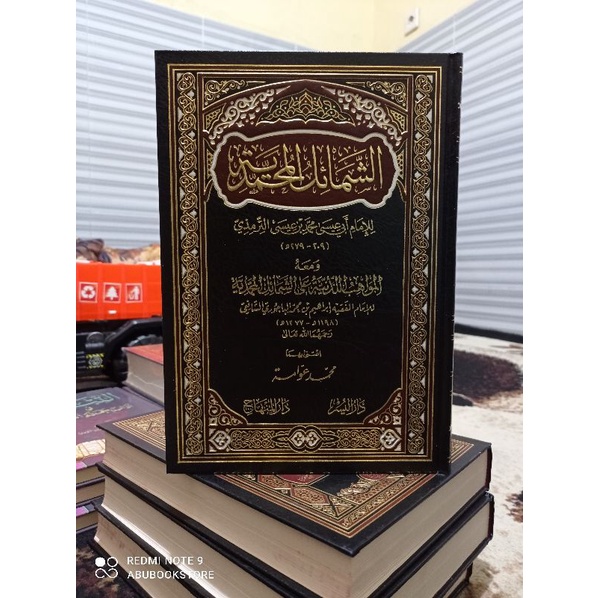 الشمائل المحمدية
للإمام أبي عيسى محمد بن عيسى الترمذي
(٢٠٩ - ٢٧٩ه)
ومعه
المواهب اللدنية على الشمائل المحمدية
للإمام الفقيه إبراهيم بن محمد الباجوري الشافعي
(١١٩٨ه - ١٢٧٧ه)
رحمهما الله تعالى
اعتنى بهما
محمد عوامة
دار اليسر
دار المنهاج
REDMI NOTE 9
ABUBOOKSTORE